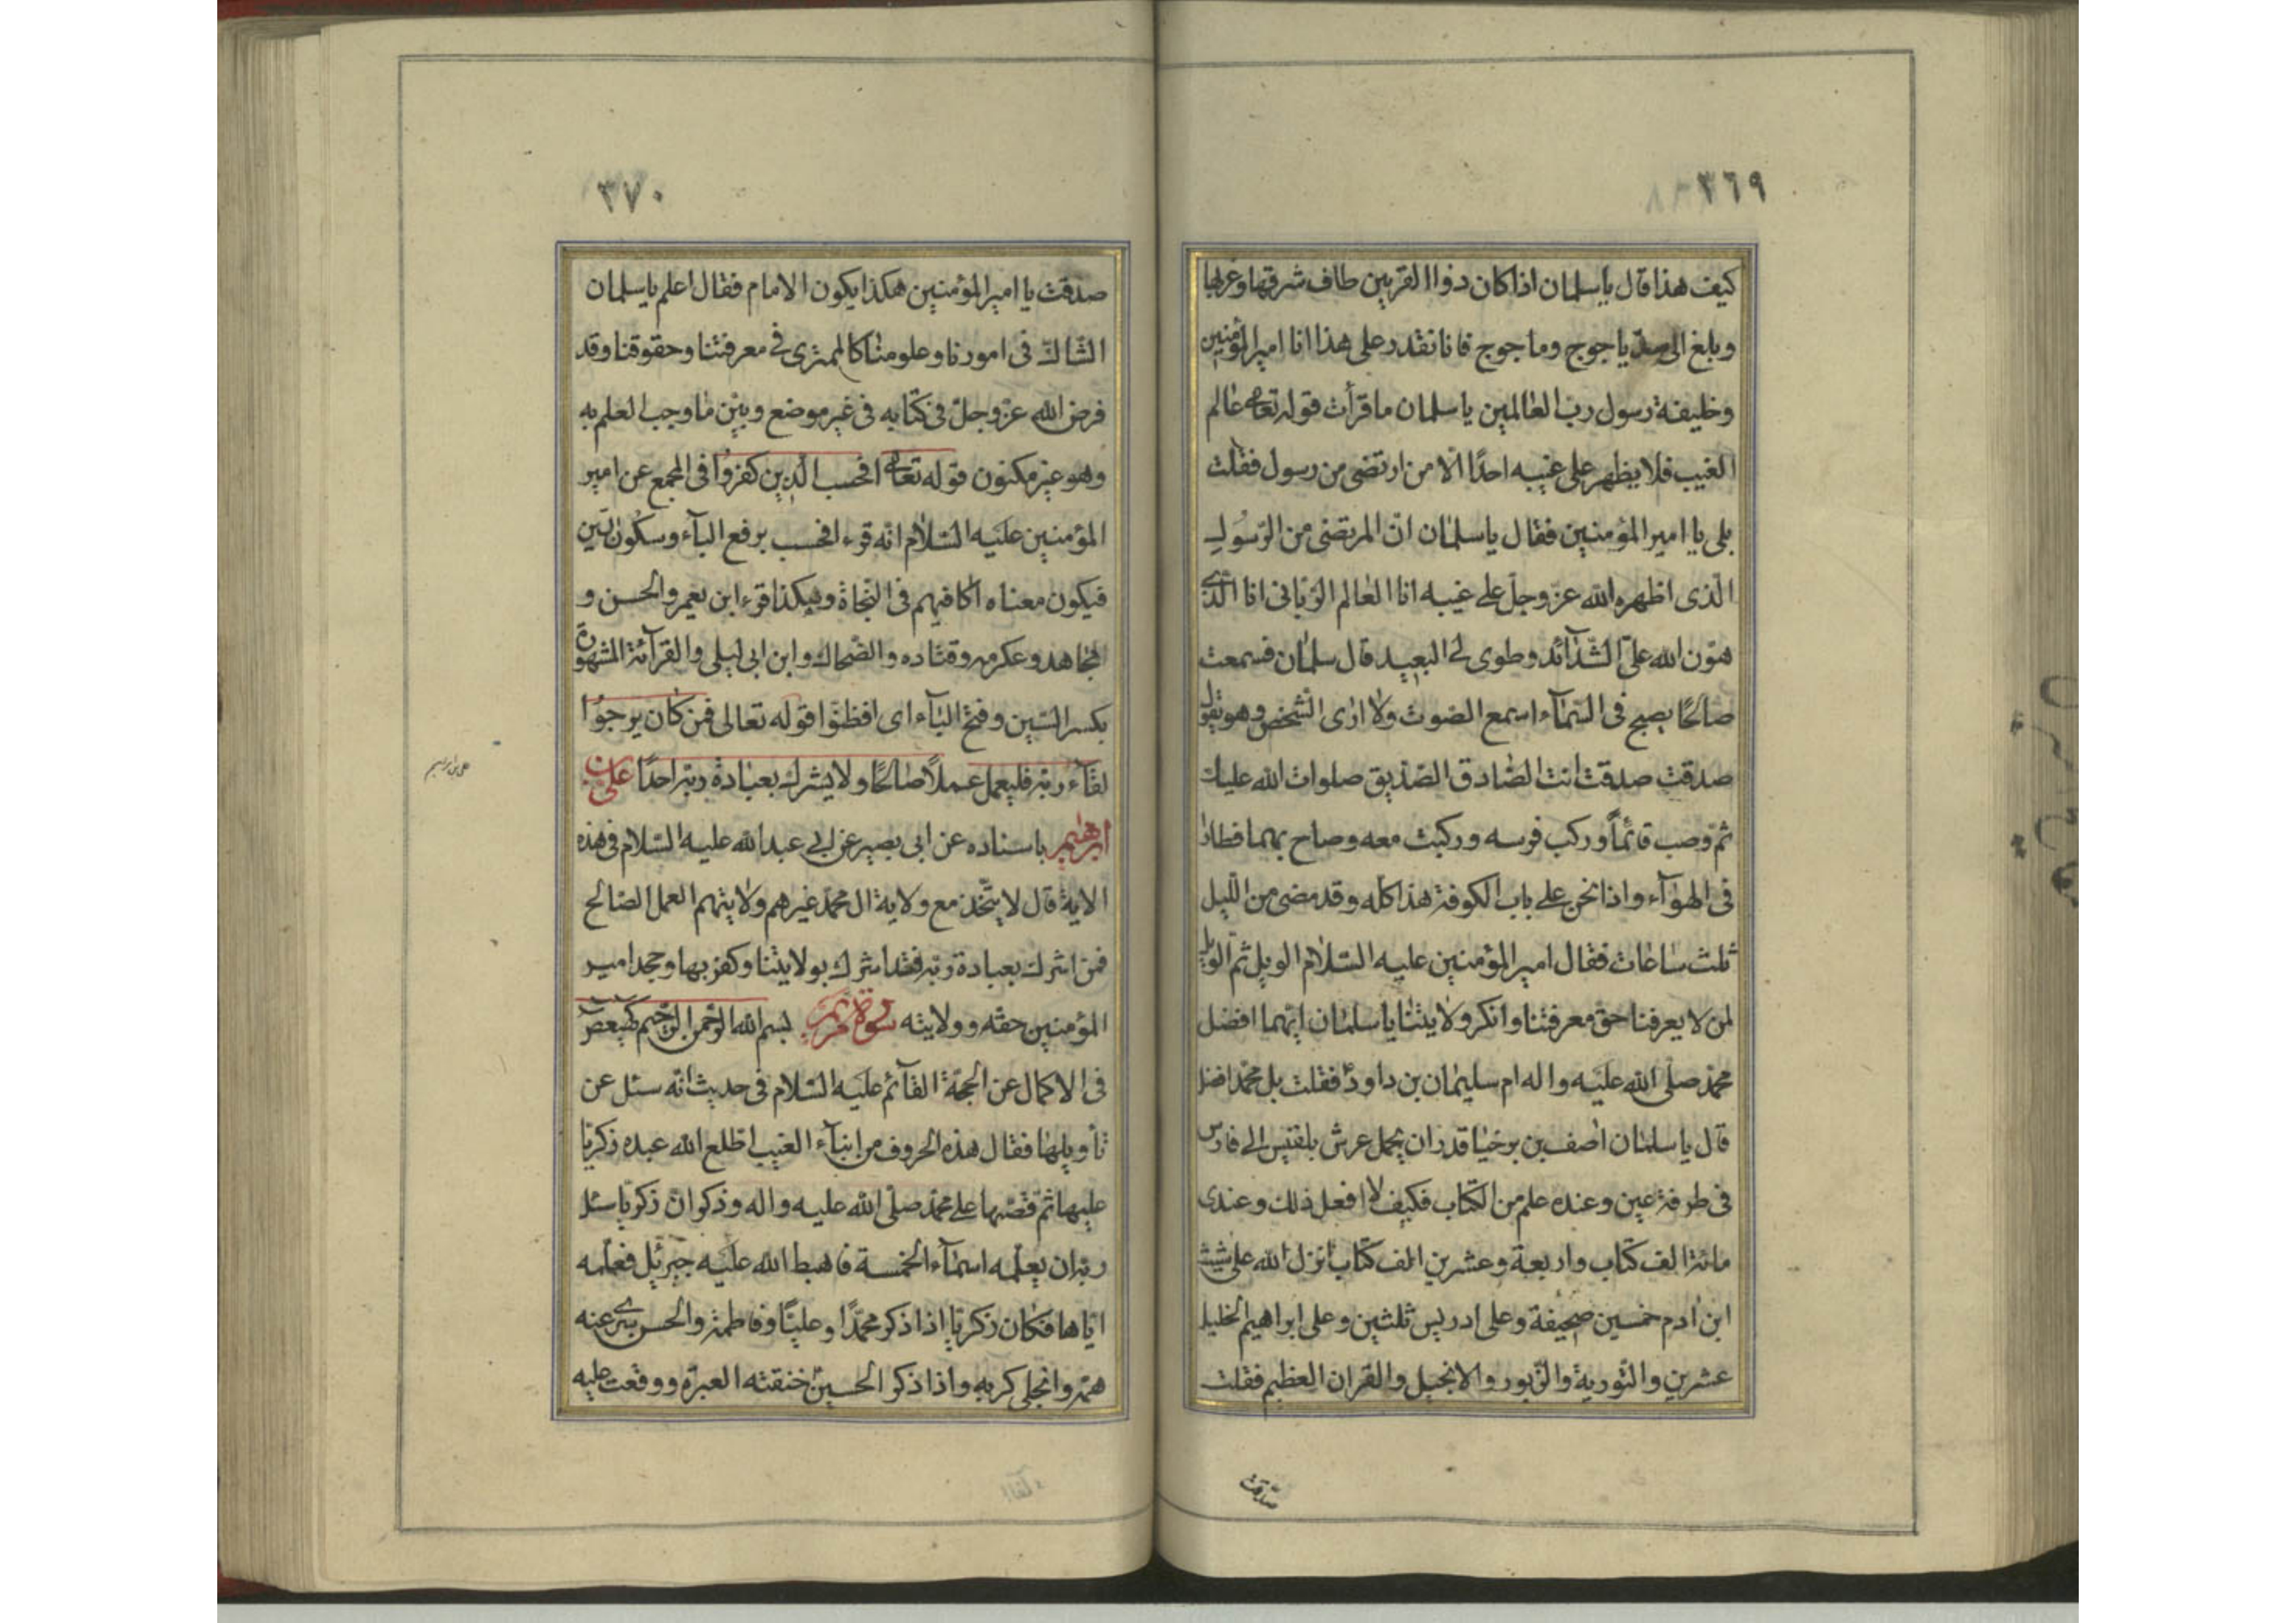 ٣٦٩
كيف هذا قال يا سلمان اذا كان ذوا القرنين طاف شرقها وغربها
وبلغ الى سدّ ياجوج وماجوج فانا نقدر على هذا انا امير المؤمنين
وخليفة رسول رب العالمين يا سلمان ما قرأت قوله تعالى عالم
الغيب فلا يظهر على غيبه احدًا الّا من ارتضى من رسول فقلت
بلى يا امير المؤمنين فقال يا سلمان انّ المرتضى من الرّسول
الّذى اظهره الله عزّ وجلّ على غيبه انا العالم الرّبانى انا الّذى
هوّن الله علىّ الشّدآئد وطوى لى البعيد قال سلمان فسمعت
صآئحًا يصيح فى السّمآء اسمع الصّوت ولا ارى الشّخص وهو يقول
صدقت صدقت انت الصّادق الصّدّيق صلوات الله عليك
ثمّ وصب قائمًا وركب فرسه وركبت معه وصاح بهما فطارا
فى الهوآء واذا نحن على باب الكوفة هذا كلّه وقد مضى من اللّيل
ثلث ساعات فقال امير المؤمنين عليه السّلام الويل ثمّ الويل
لمن لا يعرفنا حقّ معرفتنا وانكر ولايتنا يا سلمان ايّهما افضل
محمّد صلّى الله عليه واله ام سليمان بن داودؑ فقلت بل محمّد افضل
قال يا سلمان اصف بن برخيا قدر ان يحمل عرش بلقيس الى فارس
فى طرفة عين وعنده علم من الكتاب فكيف لا افعل ذلك وعندى
مائة الف كتاب واربعة وعشرين الف كتاب انزل الله على شيث
ابن ادم خمسين صحيفة وعلى ادريس ثلثين وعلى ابراهيم الخليل
عشرين والتّورية والزّبور والانجيل والقران العظيم فقلت
صدقت
٣٧٠
صدقت يا امير المؤمنين هكذا يكون الامام فقال اعلم يا سلمان
الشّاكّ فى امورنا وعلومنا كالممترى فى معرفتنا وحقوقنا وقد
فرض الله عزّ وجلّ فى كتابه فى غير موضع وبيّن ما وجب العلم به
وهو غير مكنون قوله تعالى افحسب الّذين كفروا فى المجمع عن امير
المؤمنين عليه السّلام انّه قرء افحسب برفع البآء وسكون السّين
فيكون معناه اكافيهم فى النّجاة وهكذا قرء ابن يعمر والحسن و
مجاهد وعكرمه وقتاده والضّحاك وابن ابى ليلى والقرآئة المشهورة
بكسر السّين وفتح البآء اى افظنّوا قوله تعالى فمن كان يرجوا
لقآء ربّه فليعمل عملًا صالحًا ولا يشرك بعبادة ربّه احدًا علىّ بن
ابرهيم باسناده عن ابى بصير عن ابى عبد الله عليه السّلام فى هذه
الاية قال لا يتّخذ مع ولاية ال محمّد غيرهم ولايتهم العمل الصّالح
فمن اشرك بعبادة ربّه فقد اشرك بولايتنا وكفر بها وجحد امير
المؤمنين حقّه وولايته سورة مريم بسم الله الرّحمن الرّحيم كهيعص
فى الاكمال عن الحجّة القآئم عليه السّلام فى حديث انّه سئل عن
تأويلها فقال هذه الحروف من انبآء الغيب اطّلع الله عبده زكريّا
عليها ثمّ قصّها على محمّد صلّى الله عليه واله وذكر انّ زكريّا سئل
ربّه ان يعلّمه اسمآء الخمسة فاهبط الله عليه جبرئيل فعلّمه
ايّاها فكان زكريّا اذا ذكر محمّدًا وعليّا وفاطمة والحسن سرى عنه
همّه وانجلى كربه واذا ذكر الحسينؑ خنقته العبرة ووقعت عليه
على بن ابراهيم